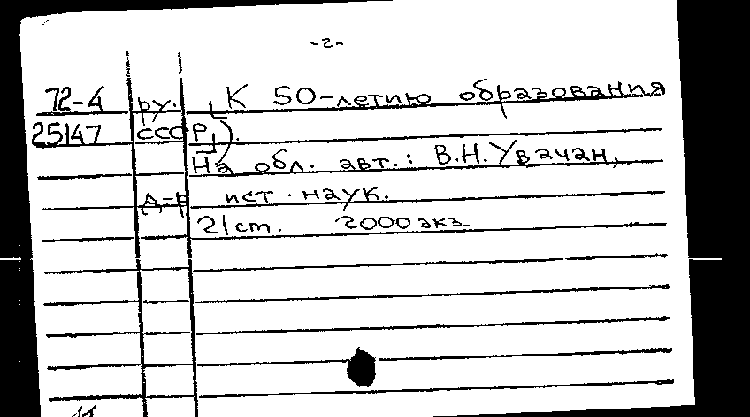 -2-
72-4 ру. [К 50-летию образования
25147 СССР]).
На обл. авт.: В.Н. Увачан,
д-р ист. наук.
21 cm. 2000 экз